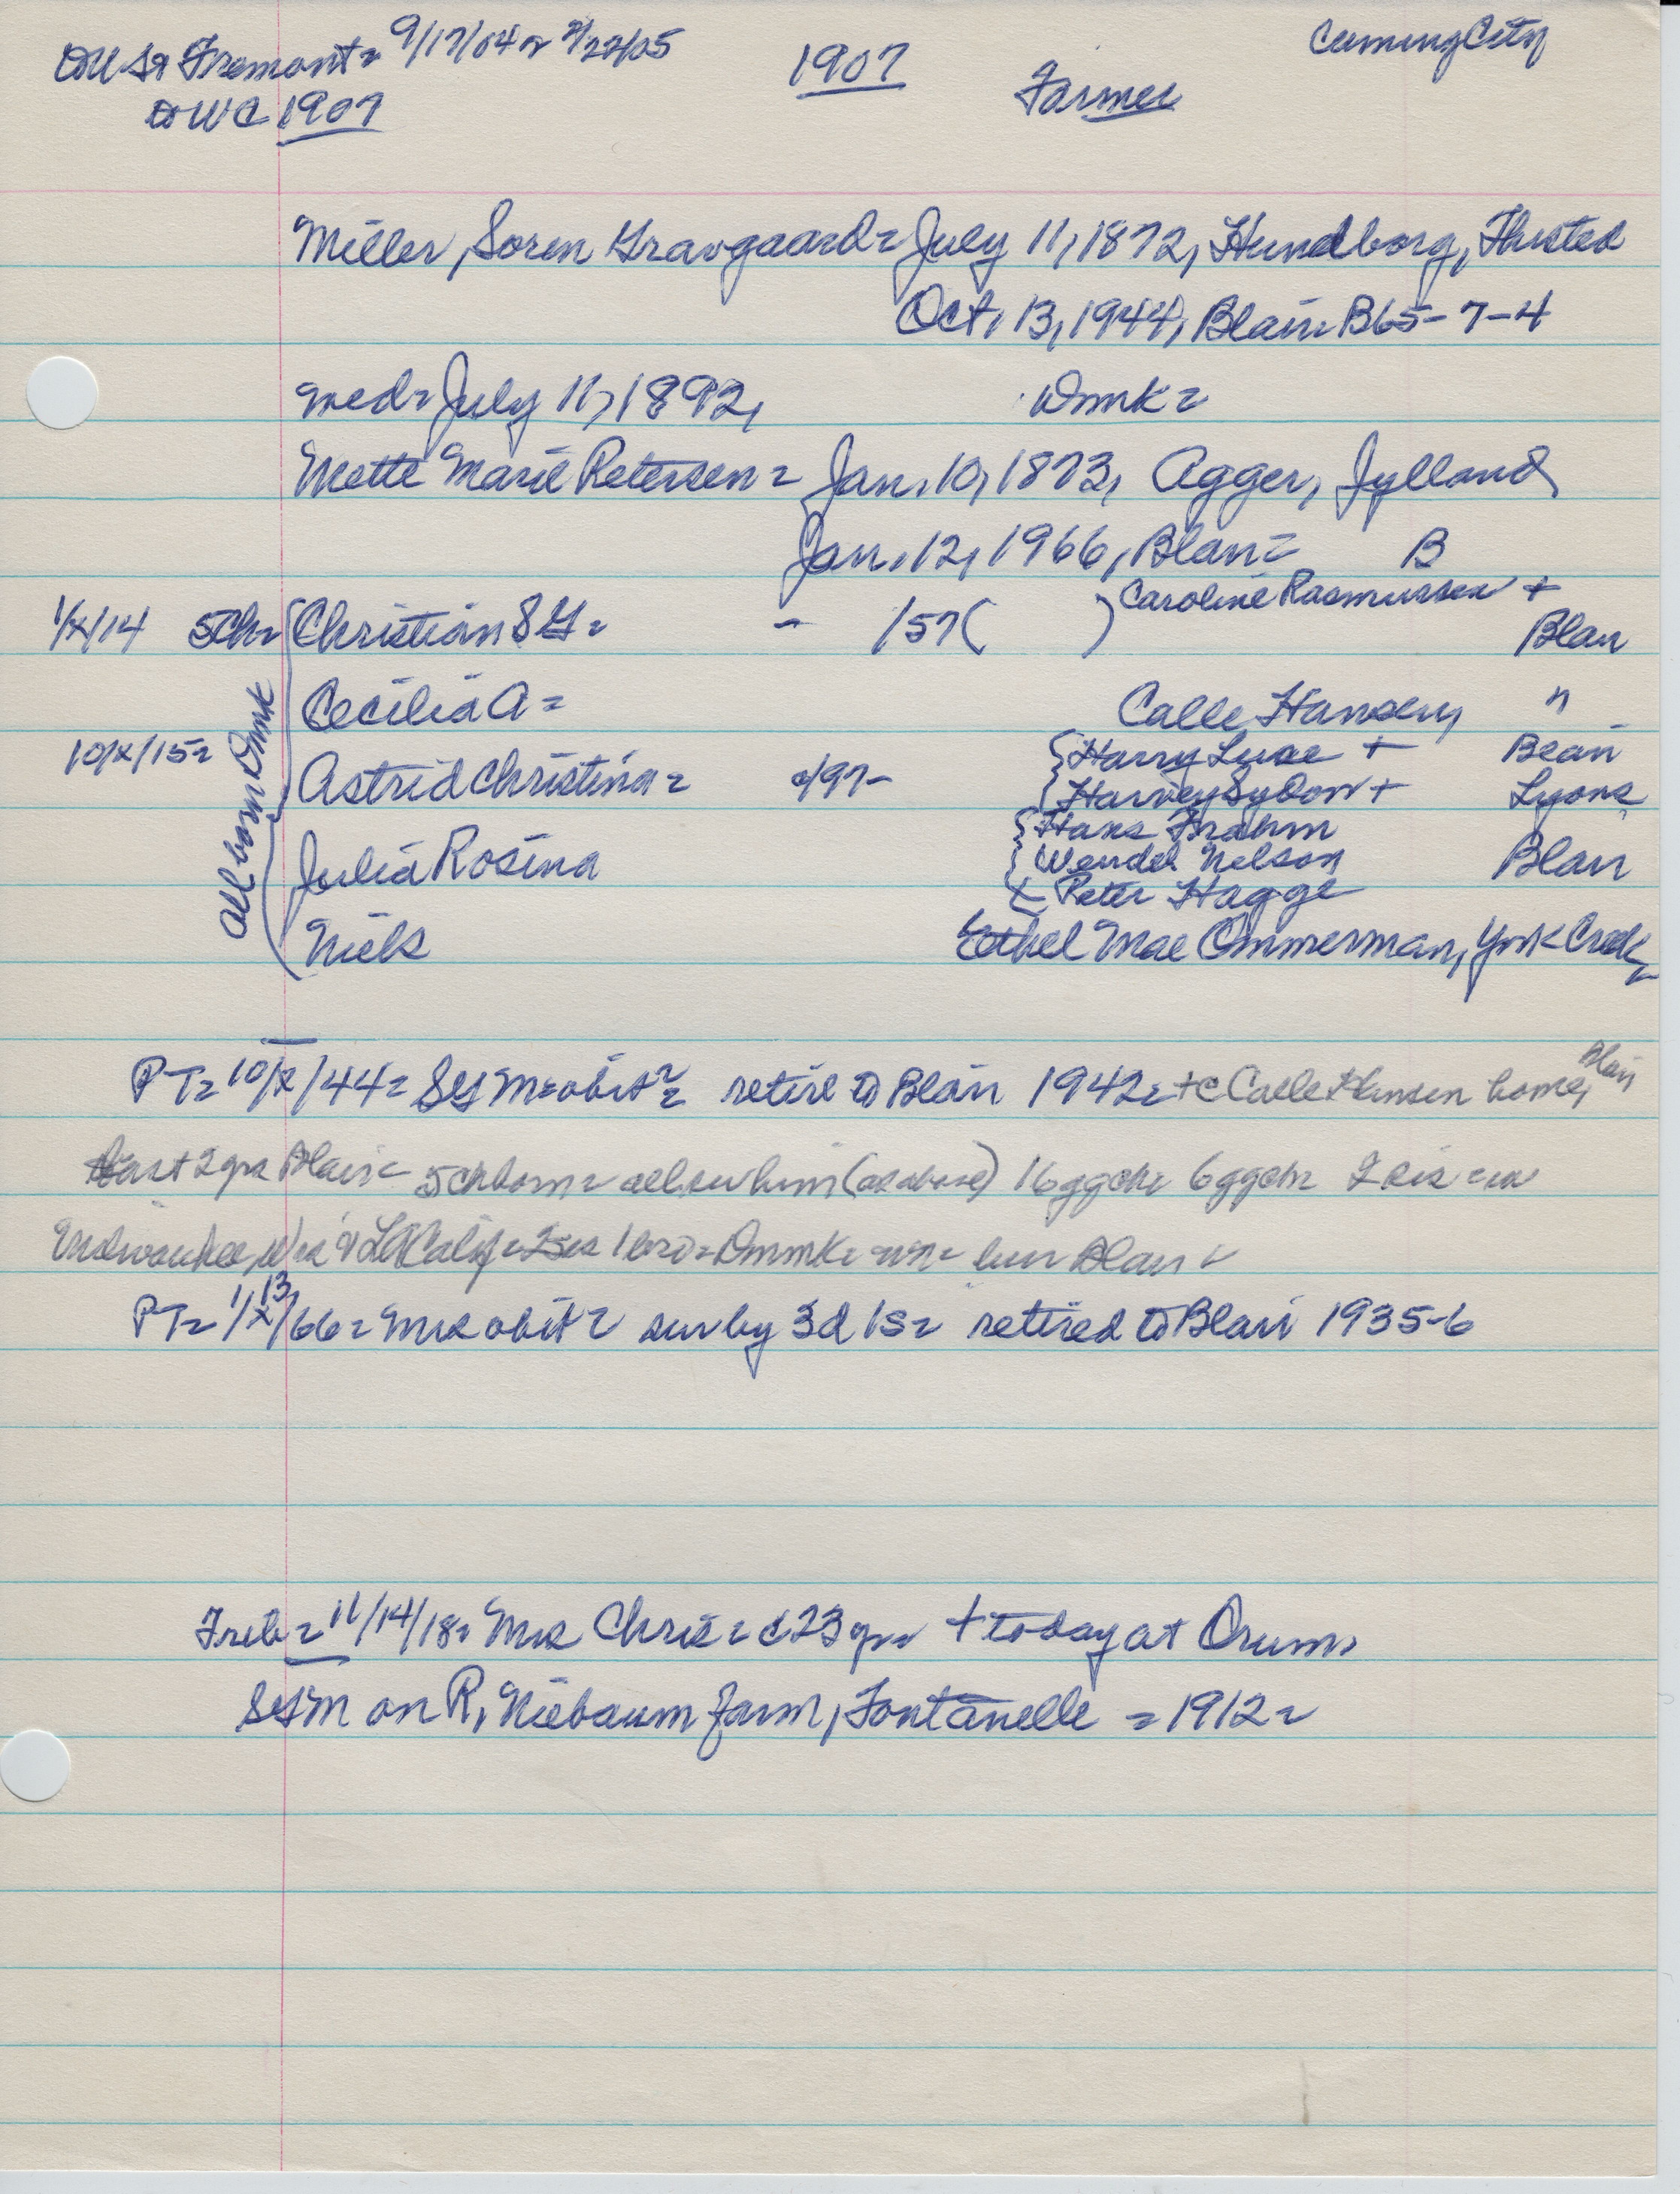 Fremont = 9/17/04 or 2/22/05
1907
Cuming City
to WC 1907
Farmer
Miller, Soren Gravgaard = July 11, 1872, Hundborg, Thisted
Oct. 13, 1944, Blair = B65-7-4
med = July 11, 1892, Dnmk =
Mette Marie Petersen = Jan. 10, 1873, Agger, Jylland
Jan. 12, 1966, Blair = B
1/x/14 5ch = Christian SG = - /57 ( ) Caroline Rasmussen +
Blair
All born Dnmk
Cecilia A = Calle Hansen, "
10/x/15 = Harry Luse + Blair
Astrid Christina = 97- Harvey Sydow + Lyons
Hans Frahm
Julia Rosina Wendel Nelson Blair
Peter Hagge
Niels Ethel Mae Ommerman, York Creek
PT = 10/x/44 = SGM = obit = retire to Blair 1942 = + @ Calle Hansen home, Blair
last 2 yrs Blair = 5 ch born = all sur him (as above) 16 gch 6 ggch 2 sis =
Milwaukee, Wis & LA Calif = 2 sis 1 bro = Dnmk = bur Blair =
PT = 1/13/66 = Mrs obit = sur by 3d 1s = retired to Blair 1935-6
Trib = 11/14/18 = Mrs Chris = 23 yrs + today at Orum,
SGM on R. Niebaum farm, Fontanelle = 1912 =